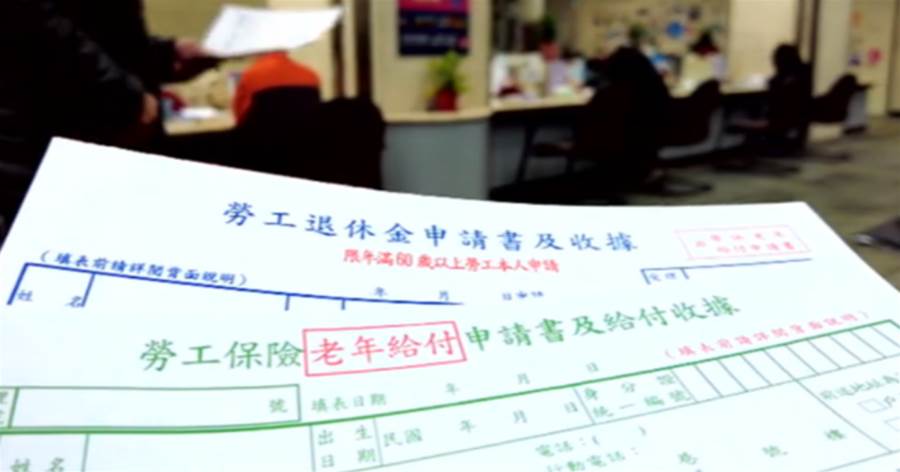 勞工退休金申請書及收據
非勞保老年
給付申請書
限年滿60歲以上勞工本人申請
(填表前請詳閱背面說明)
姓 名
年 月 日
勞工保險老年給付申請書及給付收據
(填表前請詳閱背面說明)
號
填表日期 年 月 日
身分證
統一編號
姓名
出生
日期
民國 年 月 日
電話:( )
行動電話:
巷 號 樓